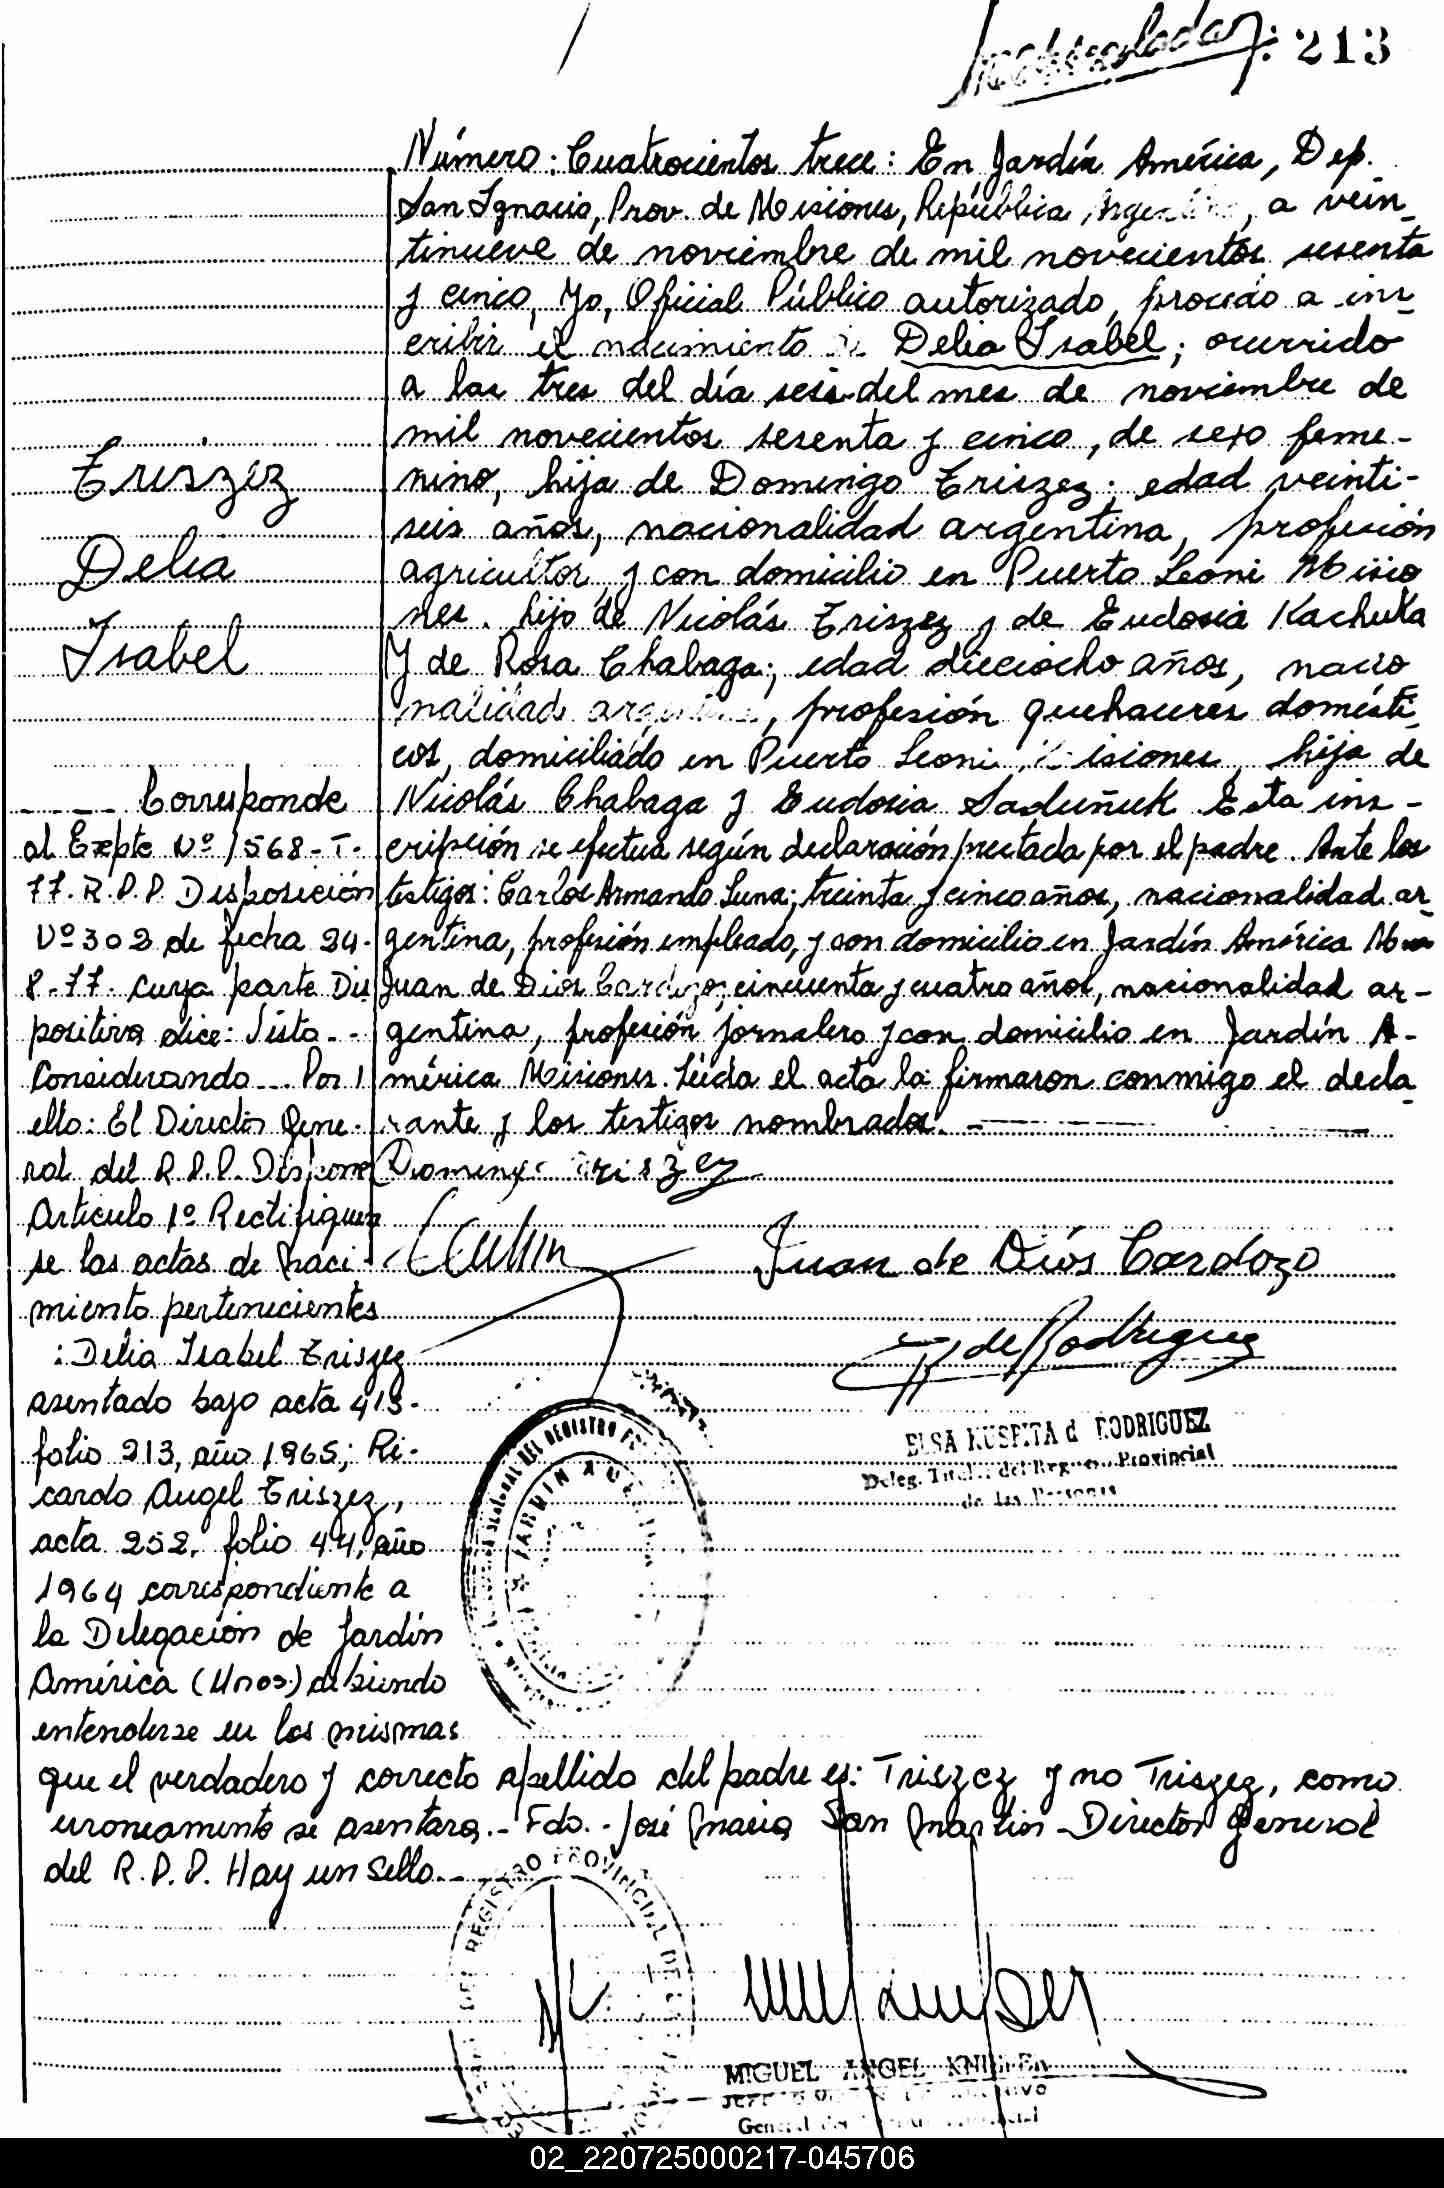 Inmatriculada: 213
Número: Cuatrocientos trece: En Jardín América, Dep.
San Ignacio, Prov. de Misiones, República Argentina, a vein-
tinueve de noviembre de mil novecientos sesenta
y cinco, Yo, Oficial Público autorizado, procedo a ins-
cribir el nacimiento de Delia Isabel; ocurrido
a las tres del día seis del mes de noviembre de
mil novecientos sesenta y cinco, de sexo feme-
nino, hija de Domingo Triszez; edad veinti-
seis años, nacionalidad argentina, profesión
agricultor, y con domicilio en Puerto Leoni Misio
nes. hijo de Nicolás Triszez y de Eudosia Kachuka
Y de Rosa Chabaga; edad dieciocho años, nacio
nalidad argentina, profesión quehaceres domésti-
cos, domiciliado en Puerto Leoni, Misiones, hija de
Nicolás Chabaga y Eudosia Saduñuk Esta ins-
cripción se efectua según declaración prestada por el padre. Ante los
testigos: Carlos Armando Luna; treinta y cinco años, nacionalidad ar-
gentina, profesión empleado, y con domicilio en Jardín América
Juan de Dios Cardozo; cincuenta y cuatro años, nacionalidad ar-
gentina, profesión jornalero y con domicilio en Jardín A-
mérica Misiones. Leida el acta la firmaron conmigo el decla
rante y los testigos nombrados.
Domingo Triszez
Juan de Dios Cardozo
de Rodriguez
ELSA d RODRIGUEZ
Deleg. Titular del Registro Provincial
de las Personas
Triszez
Delia
Isabel
Corresponde
al Expte Nº 1568-T-
77. R.P.P. Disposición
Nº 302 de fecha 24-
8-77. cuya parte Dis
positiva dice: Visto..
Considerando... Por
ello: El Director Gene-
ral del R.P.P. Dispone
Articulo 1º Rectifiquen
se las actas de naci-
miento pertenecientes
: Delia Isabel Triszez
asentado bajo acta 413-
folio 213, año 1965; Ri-
cardo Angel Triszez,
acta 252, folio 44, año
1964 correspondiente a
la Delegación de Jardín
América (Mnes.) debiendo
entenderse en los mismas
que el verdadero y correcto apellido del padre es: Triszcz y no Triszez, como
erroneamente se asentara.- Fdo.- José María San Martin - Director General
del R.P.P. Hay un Sello.
DEL REGISTRO PROVINCIAL DE
MIGUEL ANGEL
02_220725000217-045706